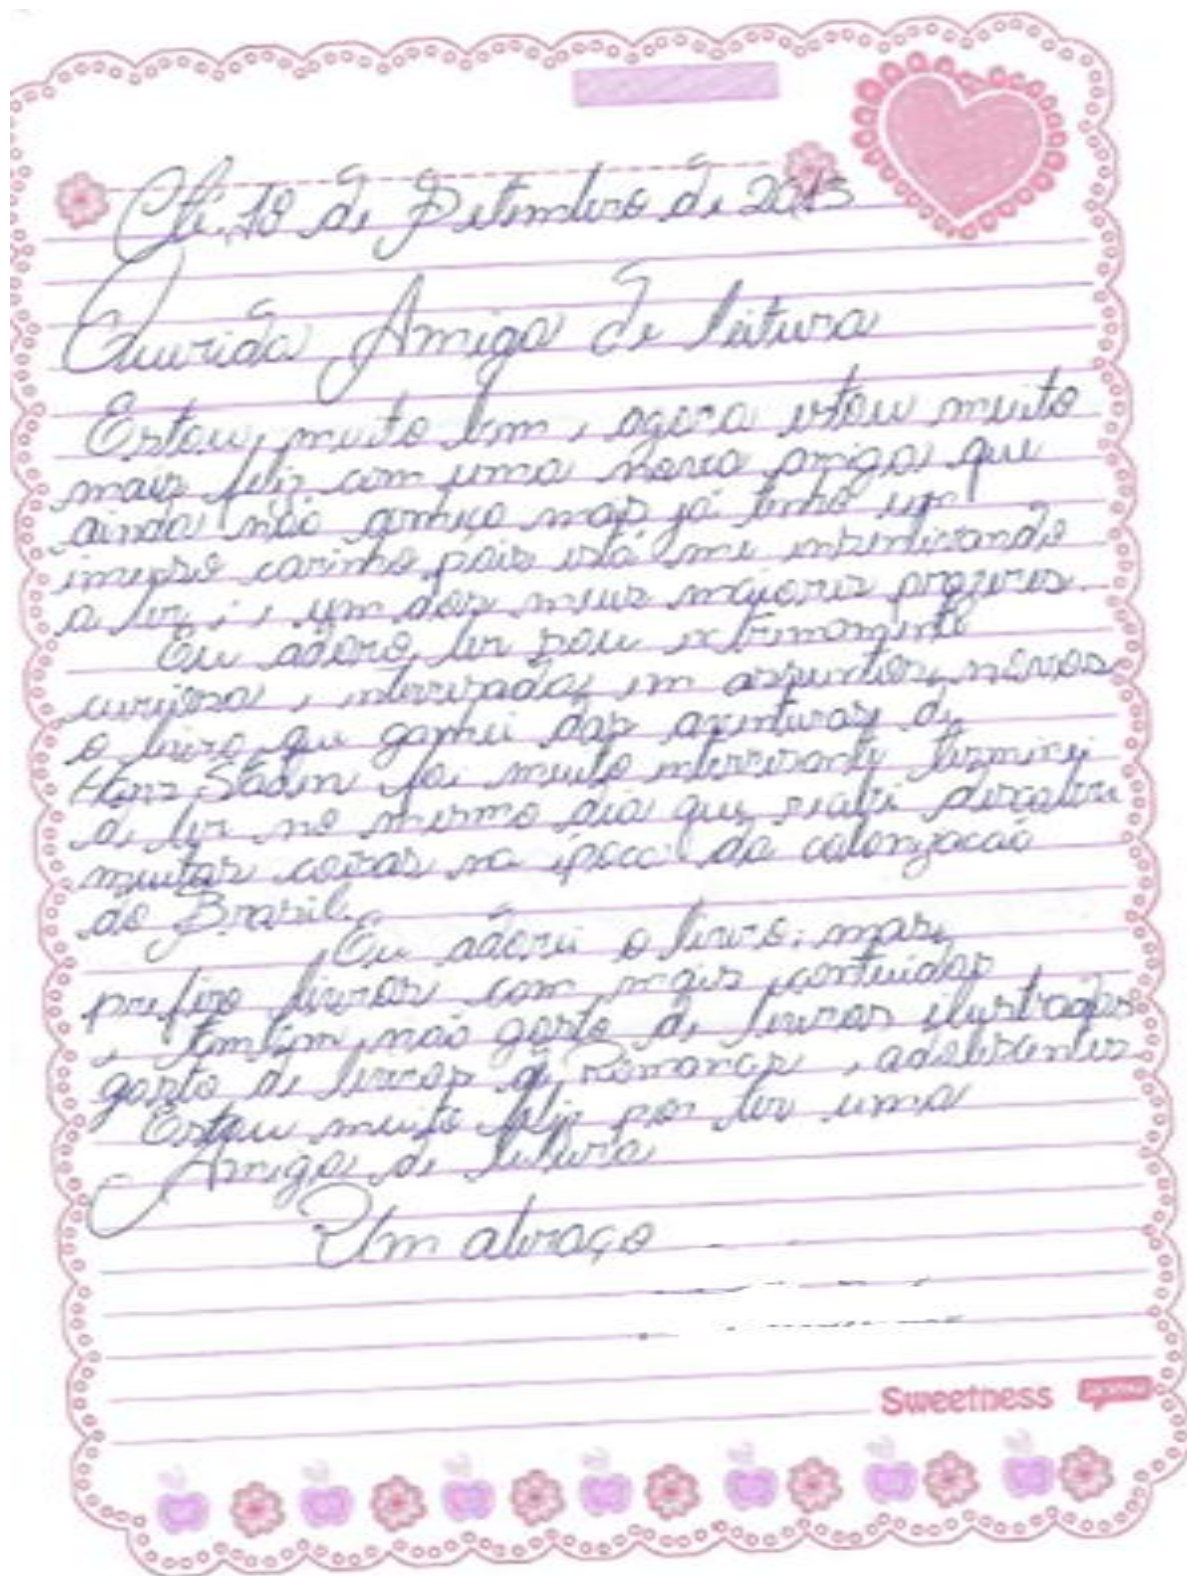 Cté, 18 de Setembro de 2013
Querida Amiga de leitura
Estou, muito bem, agora estou muito
mais feliz com uma nova amiga que
ainda não conheço mais já tenho um
imenso carinho, pois está me insentivando
a ler, é um dos meus maiores prazeres.
Eu adoro, ler sou extremamente
curiosa, interesada, em assuntos, novos
o livro, que ganhei das aventuras de
Hans Staden foi muito interresante terminei
de ler no mesmo dia que, recebi descobri
muitas coisas na época da colonização
do Brasil.
Eu adorei o livro, mas,
prefiro livros com mais conteúdos
e também não gosto de livros ilustrados
gosto de livros de romances, adolescentes
Estou muito feliz por ter uma
Amiga de leitura
Um abraço
Sweetness